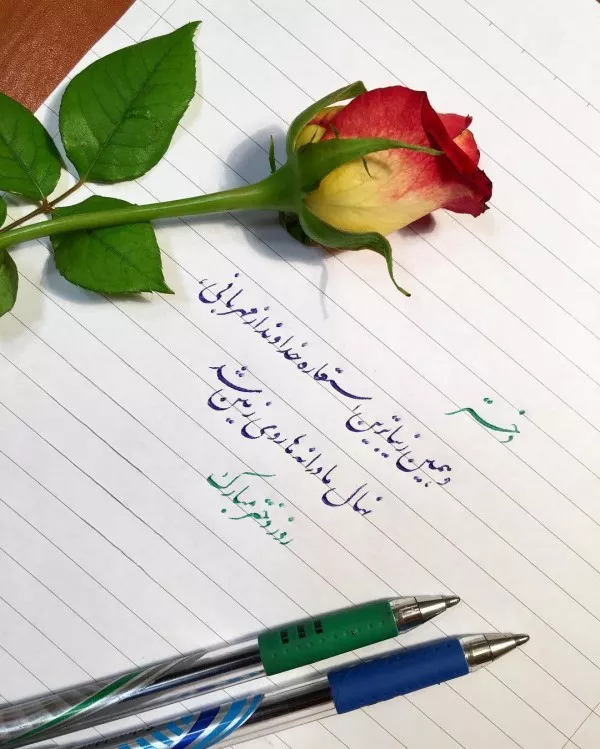 دختر
و همین زیباترین استعاره خداوند از مهربانی،
نهال مادرانه‌ها روی زمین شد
روز دختر مبارک